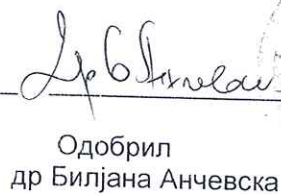 Одобрил
др Билјана Анчевска